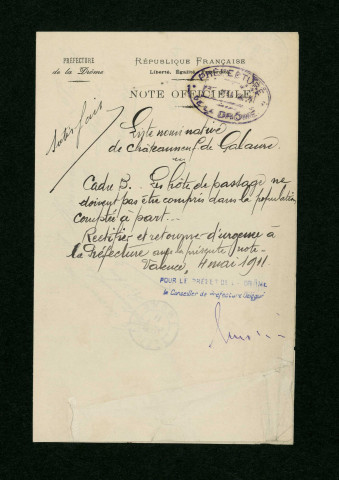 PRÉFECTURE
de la Drôme
RÉPUBLIQUE FRANÇAISE
Liberté, Égalité
PRÉFECTURE
DE LA DROME
NOTE OFFICIELLE
Satisfait
Liste nominative
de Châteauneuf de Galaure
Cadre B. Les hôte de passage ne
doivent pas être compris dans la population
comptée à part.
Rectifier et retourner d'urgence à
la Préfecture avec la présente note.
Valence, 4 mai 1911
POUR LE PRÉFET DE LA DRÔME
le Conseiller de Préfecture délégué